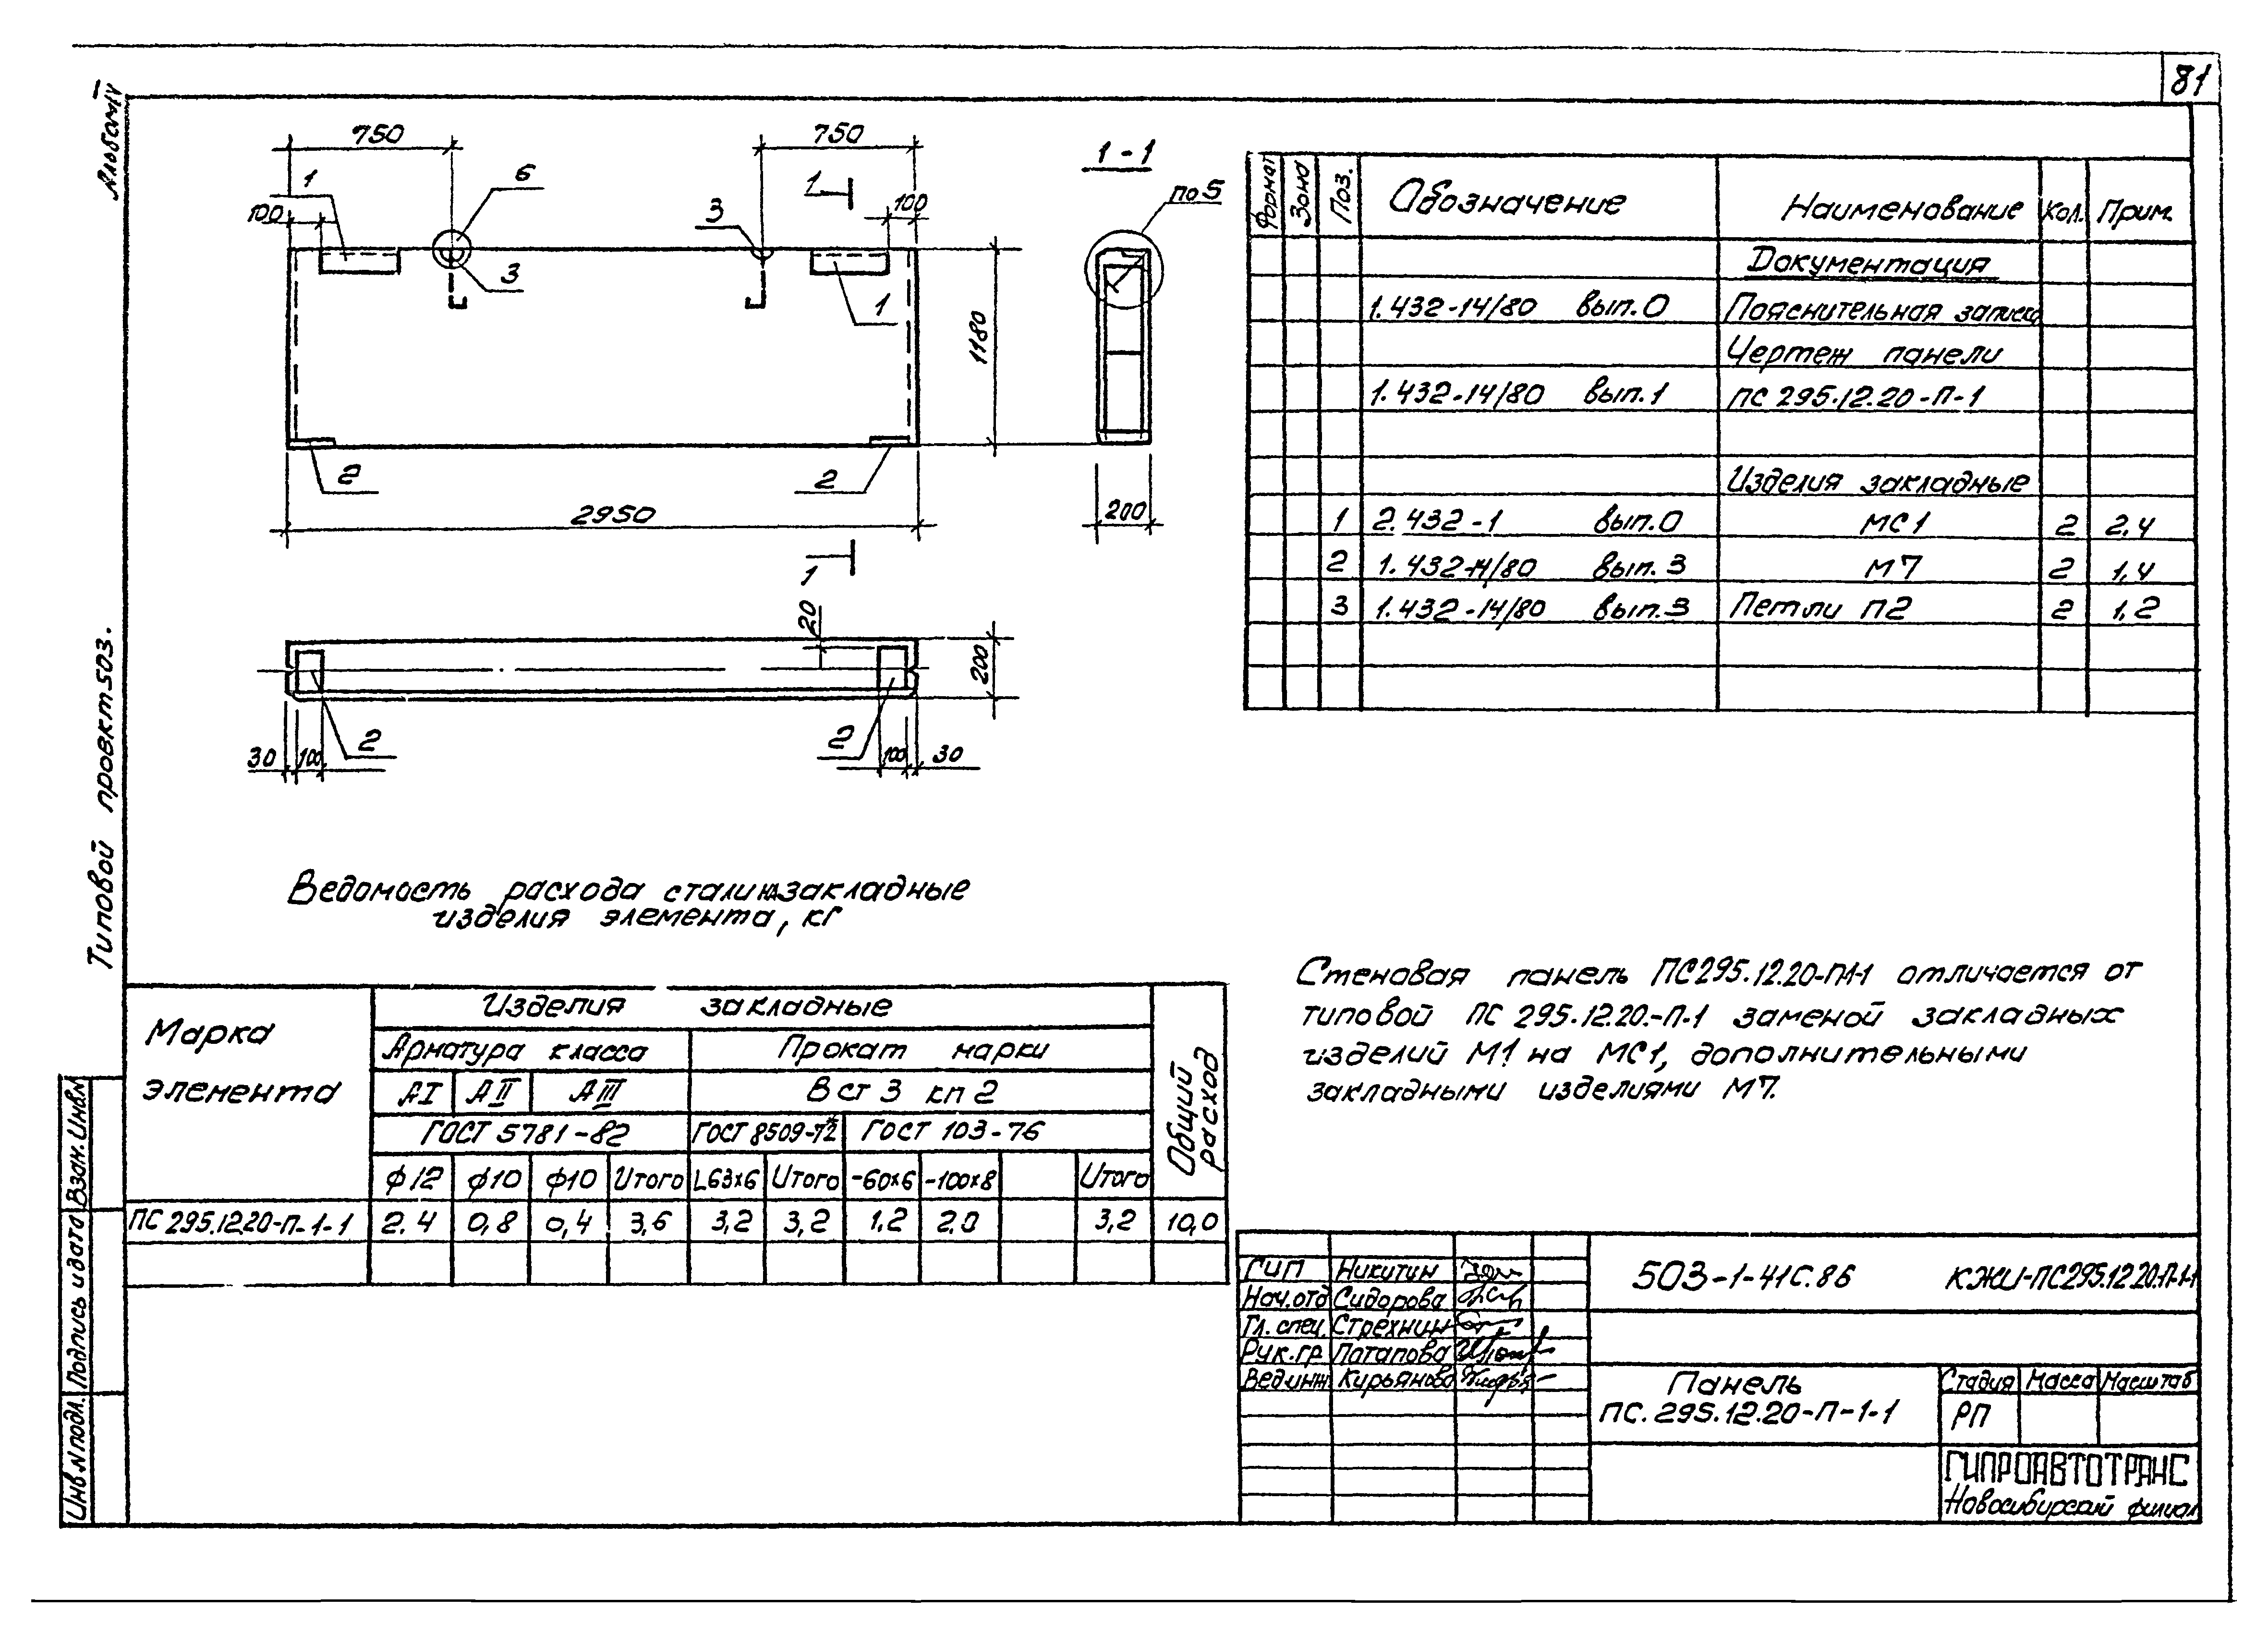 81
Альбом IV
Типовой проект 503.
Взам. Инв.№
Подпись и дата
Инв № подл.
750
750
1
6
1
1-1
100
3
100
по 5
3
1
1180
2
2
2950
200
1
20
200
2
2
30
100
100
30
Формат Зона Поз. Обозначение Наименование Кол. Прим.
Документация
1.432-14/80 вып.0 Пояснительная записка
Чертеж панели
1.432-14/80 вып.1 ПС 295.12.20-П-1
Изделия закладные
1 2.432-1 вып.0 МС1 2 2,4
2 1.432-14/80 вып.3 М7 2 1,4
3 1.432-14/80 вып.3 Петли П2 2 1,2
Ведомость расхода стали на закладные
изделия элемента, кг
Марка элемента
Изделия закладные
Общий расход
Арматура класса Прокат марки
АI АII АIII В ст 3 кп 2
ГОСТ 5781-82 ГОСТ 8509-72 ГОСТ 103-76
ф12 ф10 ф10 Итого L63х6 Итого -60х6 -100х8 Итого
ПС 295.12.20-П-1-1 2.4 0,8 0,4 3,6 3,2 3,2 1,2 2.0 3,2 10,0
Стеновая панель ПС295.12.20-П-1-1 отличается от
типовой ПС 295.12.20.-П-1 заменой закладных
изделий М1 на МС1, дополнительными
закладными изделиями М7.
ГИП Никитин
Нач.отд Сидорова
Гл. спец. Стрехнин
Рук.гр Потапова
Вед.инж Кирьянова
503-1-41с.86 КЖИ-ПС295.12.20-П-1-1
Панель
ПС.295.12.20-П-1-1
Стадия Масса Масштаб
РП
ГИПРОАВТОТРАНС
Новосибирский филиал